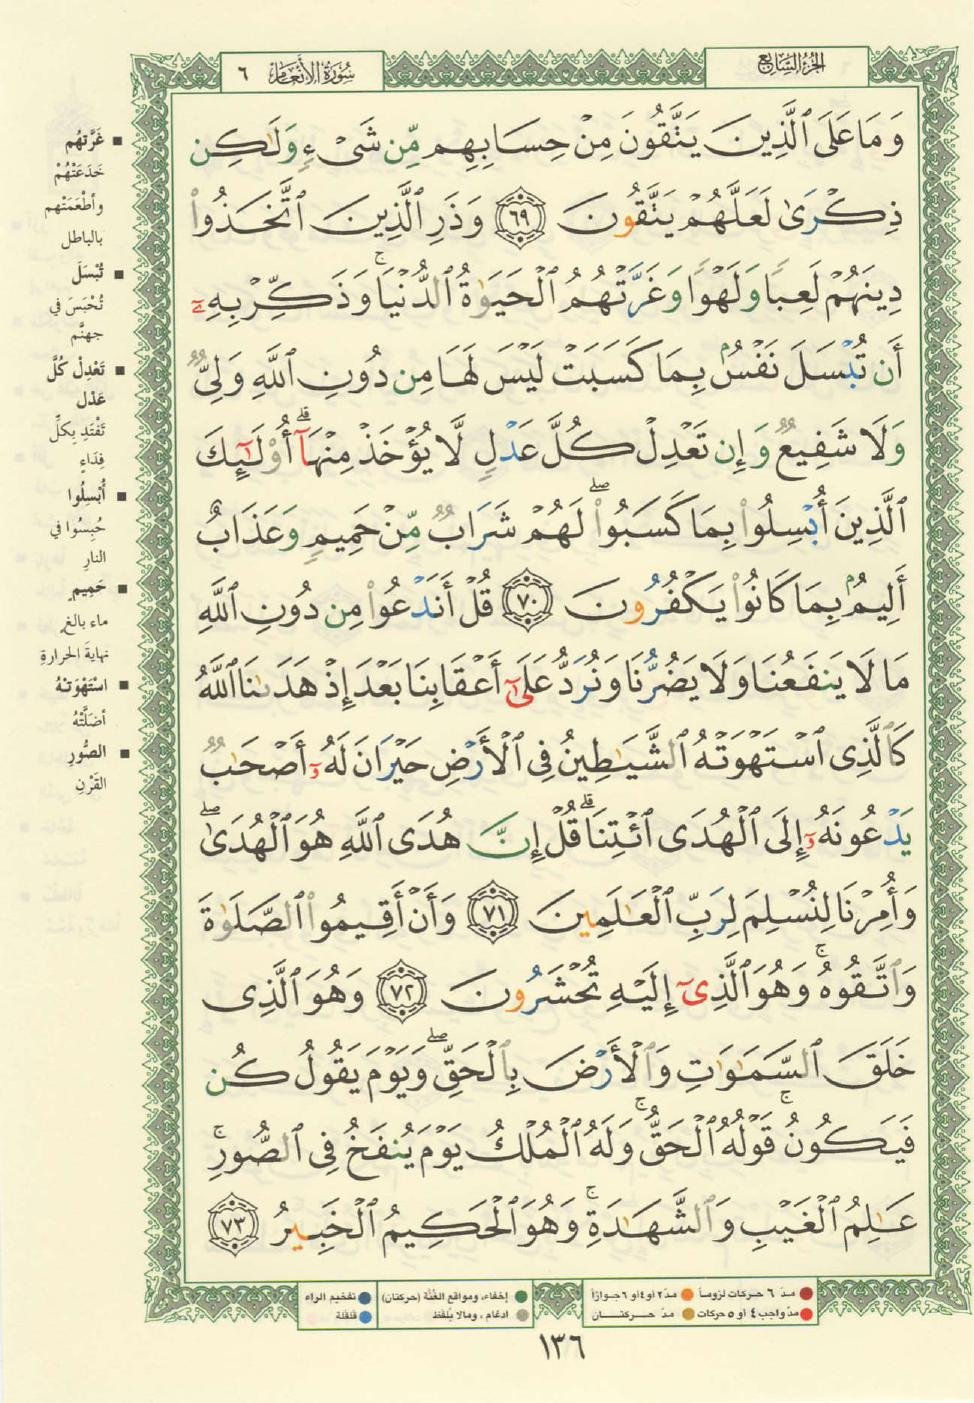 الجزء السابع
سورة الأنعام ٦
وَمَا عَلَى ٱلَّذِينَ يَتَّقُونَ مِنْ حِسَابِهِم مِّن شَىْءٍ وَلَٰكِن
ذِكْرَىٰ لَعَلَّهُمْ يَتَّقُونَ ٦٩ وَذَرِ ٱلَّذِينَ ٱتَّخَذُوا۟
دِينَهُمْ لَعِبًا وَلَهْوًا وَغَرَّتْهُمُ ٱلْحَيَوٰةُ ٱلدُّنْيَا ۚ وَذَكِّرْ بِهِۦٓ
أَن تُبْسَلَ نَفْسٌۢ بِمَا كَسَبَتْ لَيْسَ لَهَا مِن دُونِ ٱللَّهِ وَلِىٌّ
وَلَا شَفِيعٌ وَإِن تَعْدِلْ كُلَّ عَدْلٍ لَّا يُؤْخَذْ مِنْهَآ ۗ أُو۟لَٰٓئِكَ
ٱلَّذِينَ أُبْسِلُوا۟ بِمَا كَسَبُوا۟ ۖ لَهُمْ شَرَابٌ مِّنْ حَمِيمٍ وَعَذَابٌ
أَلِيمٌۢ بِمَا كَانُوا۟ يَكْفُرُونَ ٧٠ قُلْ أَنَدْعُوا۟ مِن دُونِ ٱللَّهِ
مَا لَا يَنفَعُنَا وَلَا يَضُرُّنَا وَنُرَدُّ عَلَىٰٓ أَعْقَابِنَا بَعْدَ إِذْ هَدَىٰنَا ٱللَّهُ
كَٱلَّذِى ٱسْتَهْوَتْهُ ٱلشَّيَٰطِينُ فِى ٱلْأَرْضِ حَيْرَانَ لَهُۥٓ أَصْحَٰبٌ
يَدْعُونَهُۥٓ إِلَى ٱلْهُدَى ٱئْتِنَا ۗ قُلْ إِنَّ هُدَى ٱللَّهِ هُوَ ٱلْهُدَىٰ ۖ
وَأُمِرْنَا لِنُسْلِمَ لِرَبِّ ٱلْعَٰلَمِينَ ٧١ وَأَنْ أَقِيمُوا۟ ٱلصَّلَوٰةَ
وَٱتَّقُوهُ ۚ وَهُوَ ٱلَّذِىٓ إِلَيْهِ تُحْشَرُونَ ٧٢ وَهُوَ ٱلَّذِى
خَلَقَ ٱلسَّمَٰوَٰتِ وَٱلْأَرْضَ بِٱلْحَقِّ ۖ وَيَوْمَ يَقُولُ كُن
فَيَكُونُ ۚ قَوْلُهُ ٱلْحَقُّ ۚ وَلَهُ ٱلْمُلْكُ يَوْمَ يُنفَخُ فِى ٱلصُّورِ ۚ
عَٰلِمُ ٱلْغَيْبِ وَٱلشَّهَٰدَةِ ۚ وَهُوَ ٱلْحَكِيمُ ٱلْخَبِيرُ ٧٣
■ غَرَّتهُم
خَدَعَتْهُمْ
وأطْعَمَتْهم
بالباطل
■ تُبْسَلَ
تُحْبَسَ في
جهنَّم
■ تَعْدِلْ كُلَّ
عَدْل
تَفْتَدِ بِكلِّ
فِدَاءٍ
■ أُبْسِلُوا
حُبِسُوا في
النارِ
■ حَمِيمٍ
ماء بالغٍ
نهايةَ الحرارةِ
■ اسْتَهْوَتْهُ
أضلَّتْهُ
■ الصُّورِ
القَرْنِ
مدّ ٦ حركات لزوماً مدّ ٢ أو ٤ أو ٦ جوازاً
مدّ واجب ٤ أو ٥ حركات مدّ حركتان
إخفاء، ومواقع الغُنَّة (حركتان) تفخيم الراء
ادغام، ومالا يُلفَظ قلقلة
١٣٦